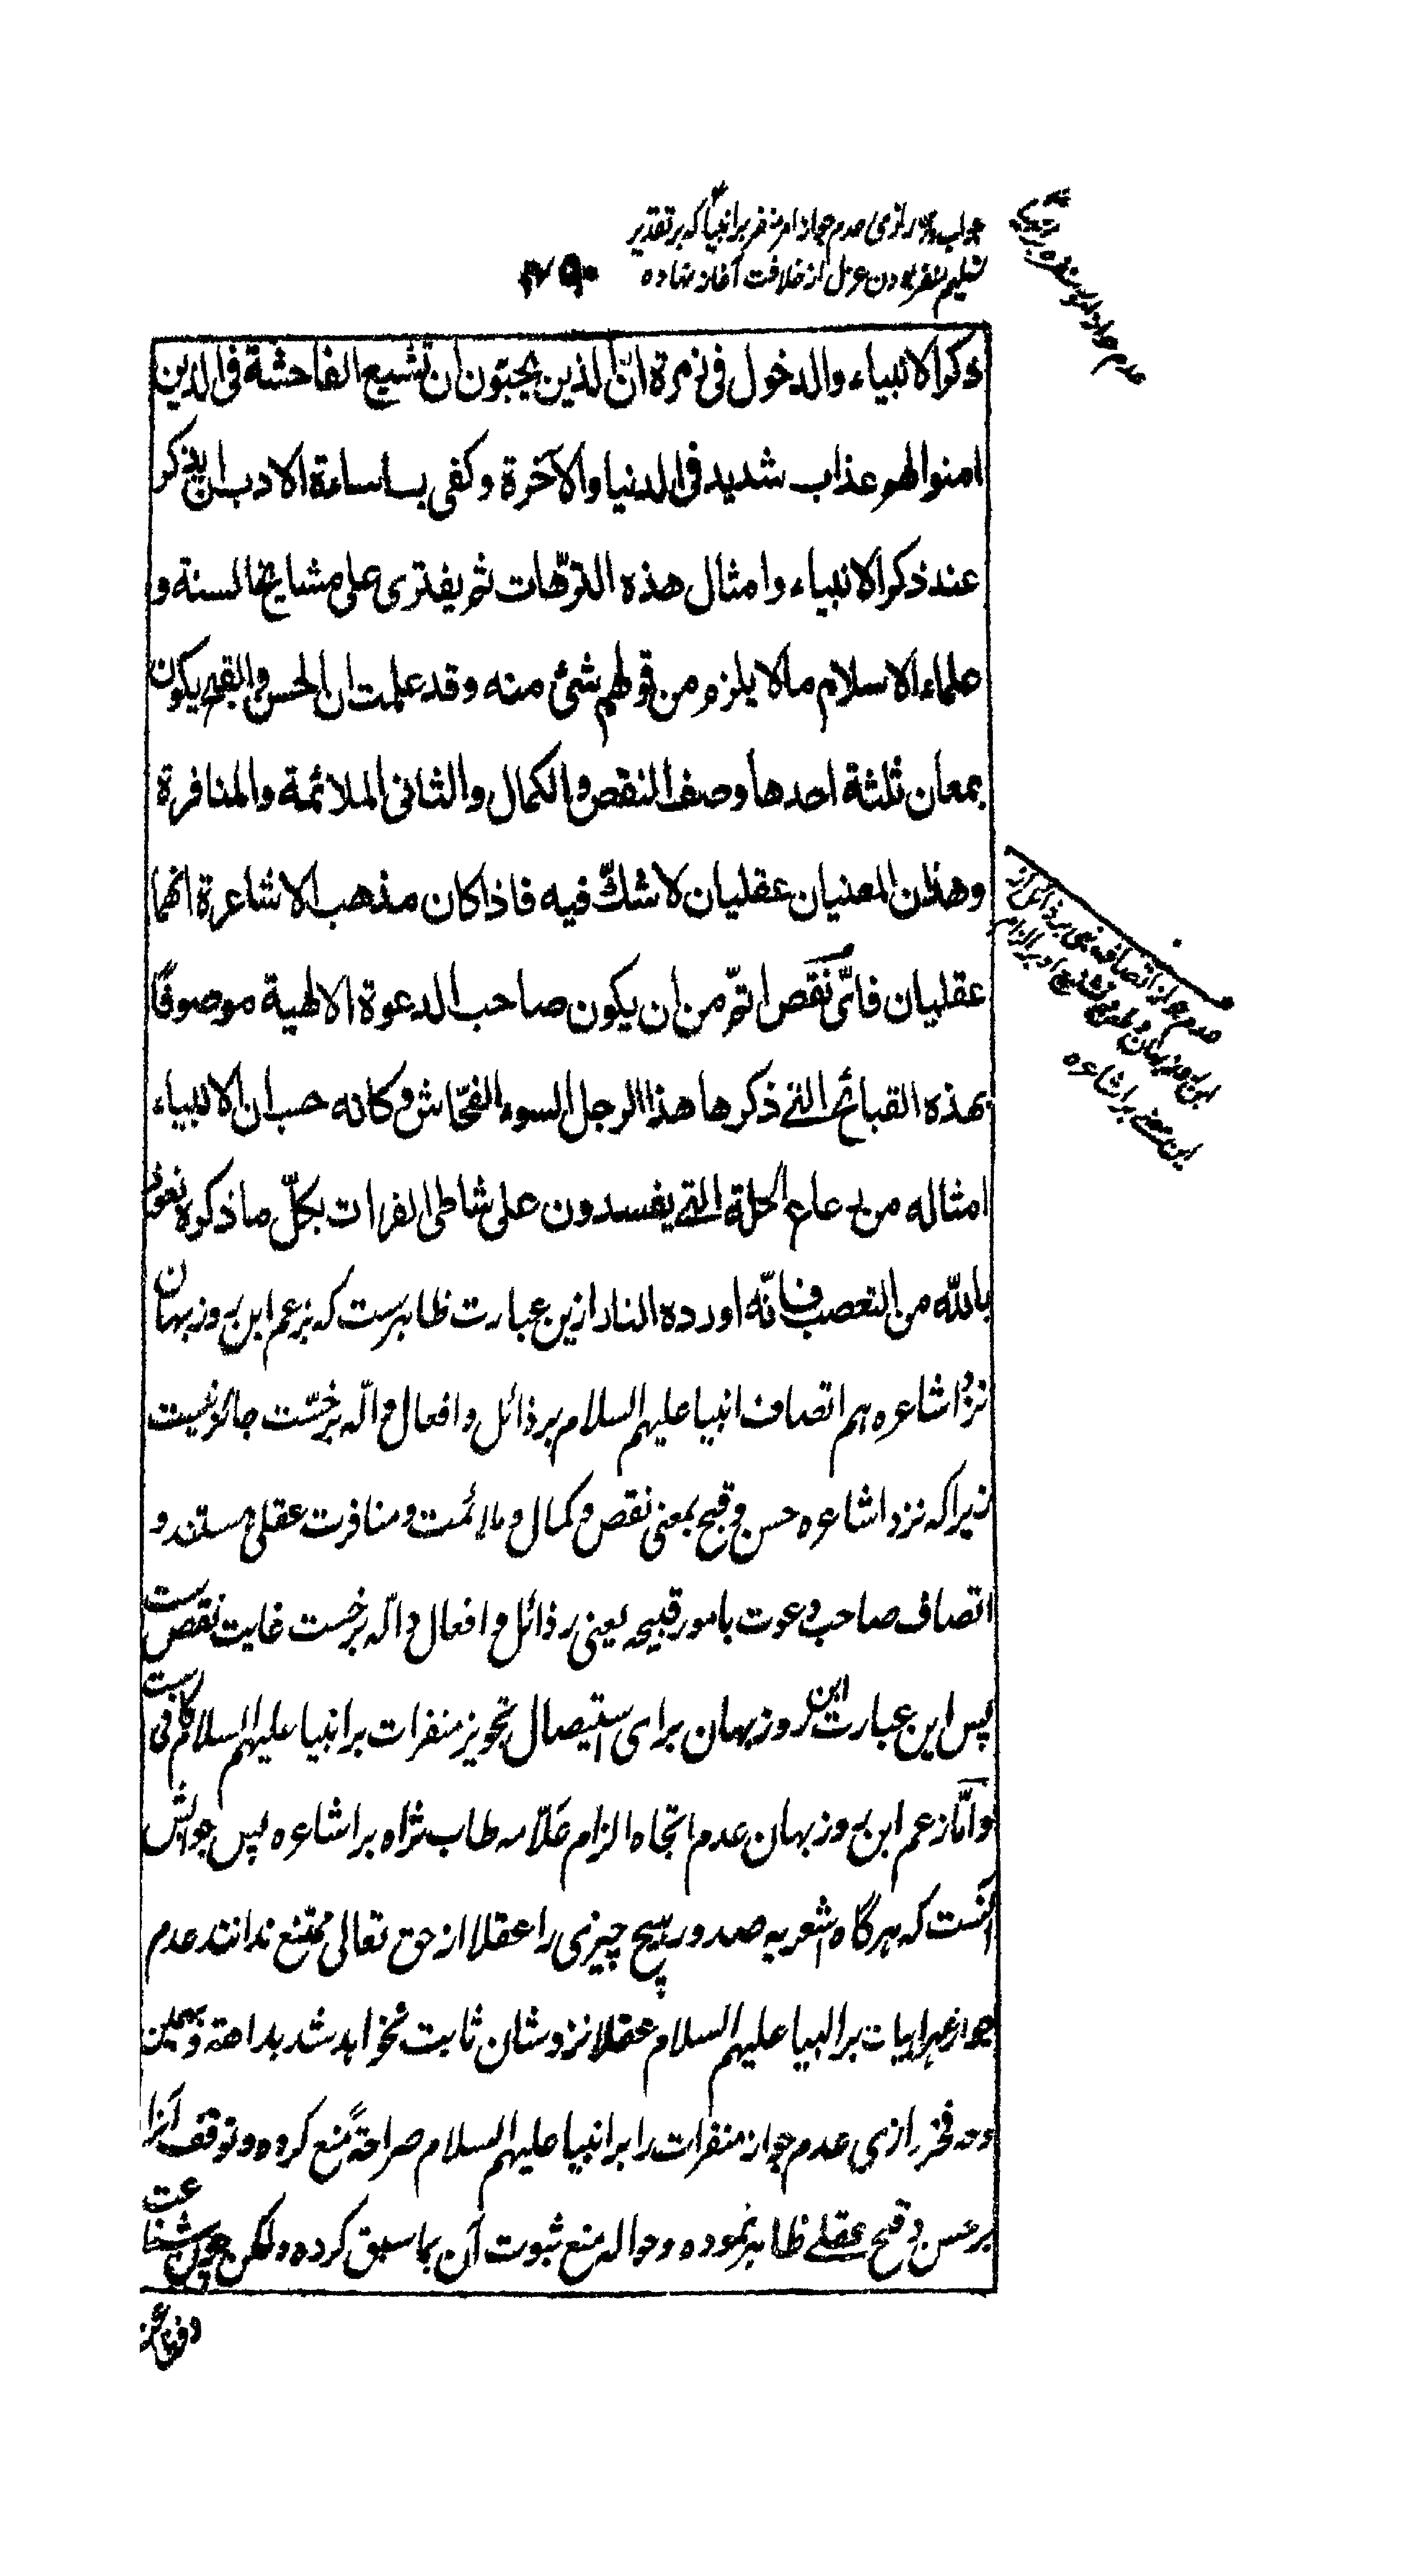 جواب رازی عدم جواز امر منفر بر انبیا که بر تقدیر
تسلیم منفر بودن عزل از خلافت آغاز نهاده
ذكر الانبياء والدخول فى زمرة انّ الذين يحبّون ان تشيع الفاحشة فى الذين
امنوا لهم عذاب شديد فى الدنيا والآخرة وكفى باساءة الادب ان يذكر
عند ذكر الانبياء وامثال هذه الترّهات ثم يفترى على مشايخ السنة و
علماء الاسلام مالا يلزم من قولهم شئ منه وقد علمت ان الحسن والقبح يكون
بمعان ثلثة احدها وصف النقص والكمال والثانى الملائمة والمنافرة
وهذان المعنيان عقليان لا شكّ فيه فاذا كان مذهب الاشاعرة انهما
عقليان فاىّ نقص اتمّ من ان يكون صاحب الدعوة الالهية موصوفًا
بهذه القبائح التے ذكرها هذا الرجل السوء الفحّاش وكانه حسب ان الانبياء
امثاله من رعاع الحلة التے يفسدون على شاطى الفرات بكلّ ما ذكره نعوذ
بالله من التعصب فانّه اورده النار ازین عبارت ظاهرست که بزعم ابن روزبهان
نزد اشاعره هم اتصاف انبیا علیهم السلام برذائل و افعال دالّه بر خسّت جائز نیست
زیرا که نزد اشاعره حسن و قبح بمعنی نقص و کمال و ملائمت و منافرت عقلی هستند و
اتصاف صاحب دعوت بامور قبیحه یعنی رذائل و افعال دالّه بر خست غایت نقص ست
پس این عبارت ابن روزبهان برای استیصال تجویز منفرات بر انبیا علیهم السلام کافی ست
وامّا زعم ابن روزبهان عدم اتجاه الزام علّامه طاب ثراه بر اشاعره پس جوابش
آنست که هرگاه اشعریه صدور هیچ چیزی را عقلا از حق تعالی ممتنع ندانند عدم
جواز بر انبیا علیهم السلام عقلا نزدشان ثابت نخواهد شد بداهة و همچنین
فخر رازی عدم جواز منفرات را بر انبیا علیهم السلام صراحةً منع کرده و توقف آنرا
بر حسن و قبح عقلے ظاهر نموده و حواله منع ثبوت آن بما سبق کرده ولکن چون شناعت
عدم جواز اتصاف نبی برذائل از
ابن روزبهان و تشنیع او بر الزام
این معنے بر اشاعره